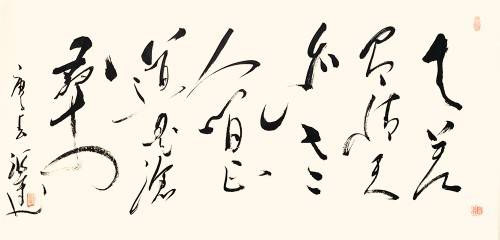 天若
有情天
亦老
人间正
道是滄
桑